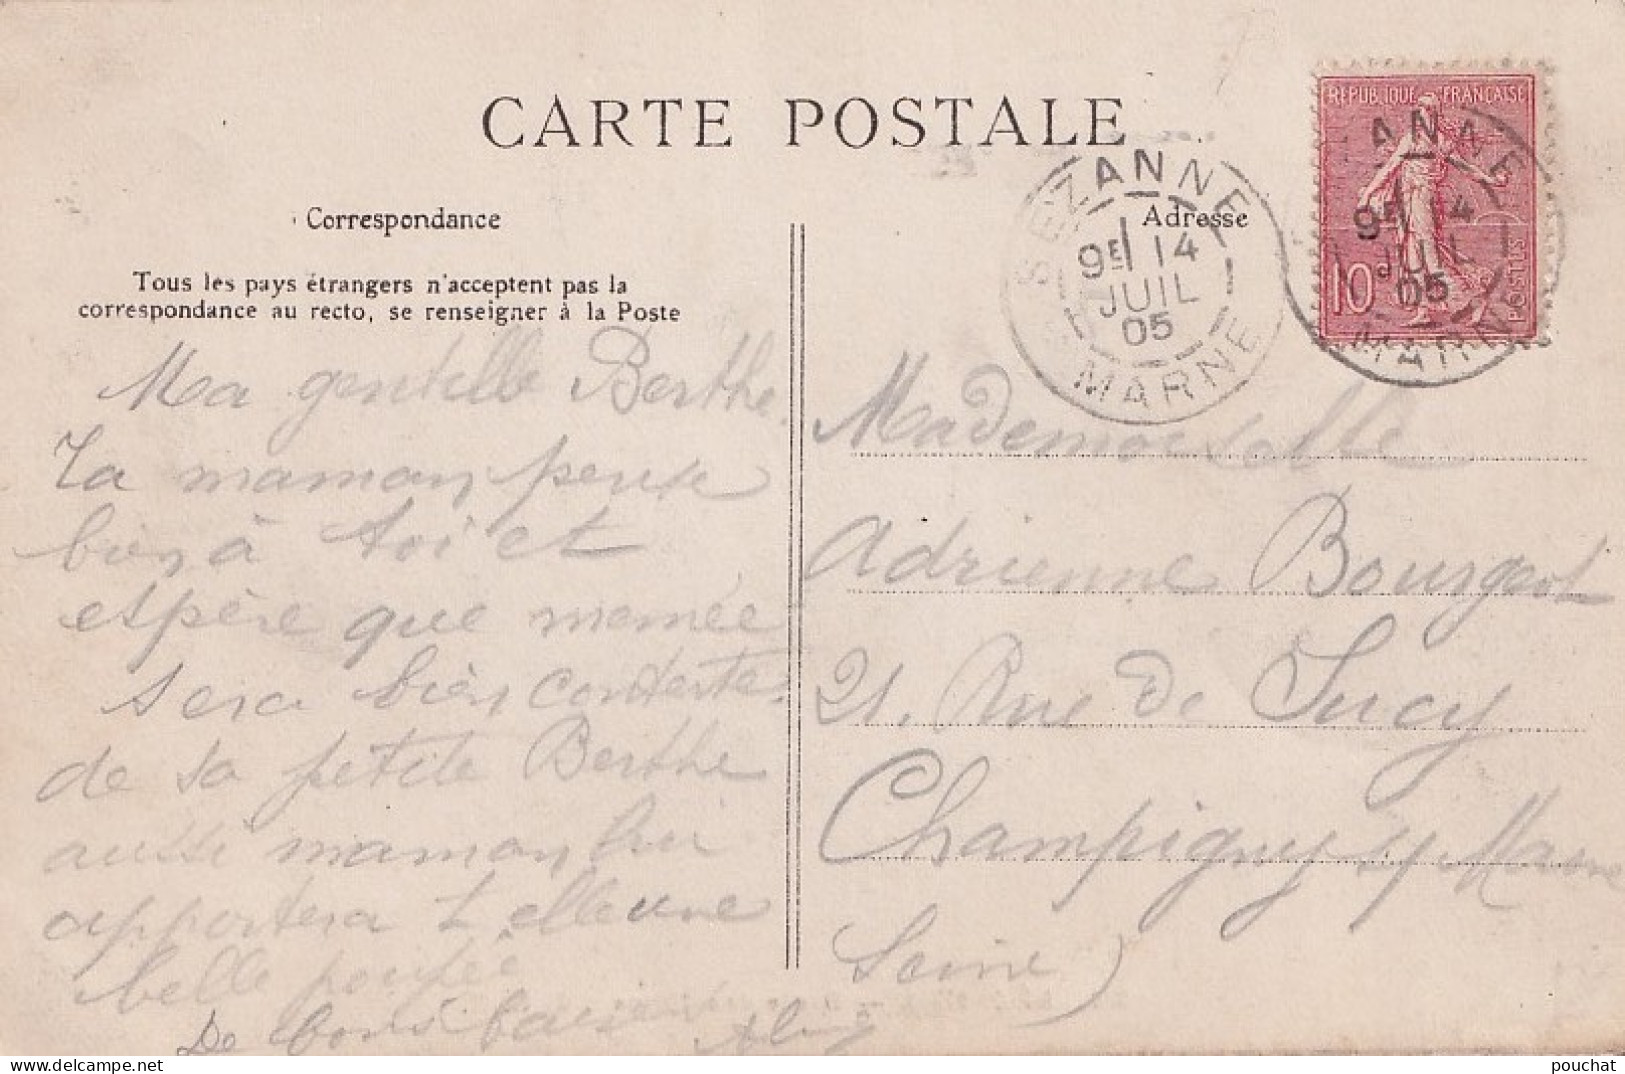 CARTE POSTALE
Correspondance
Tous les pays étrangers n'acceptent pas la
correspondance au recto, se renseigner à la Poste
Ma gentille Berthe.
Ta maman pense
bien à toi et
espère que memée
sera bien contente
de sa petite Berthe
aussi maman lui
apportera t elle une
belle poupée
De bons baisers
Adresse
SEZANNE
9E 14
JUIL
05
MARNE
REPUBLIQUE FRANÇAISE
10
POSTES
ANNE
9E 14
JUIL
05
MARN
Mademoiselle
Adrienne Bourgeot
21. Rue de Sucy
Champigny s/ Marne
Seine)
delcampe.net
pouchat